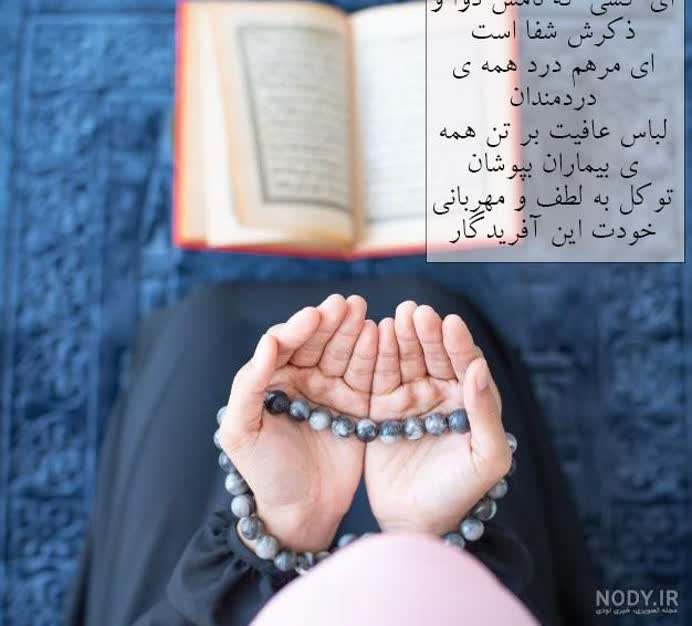 ای کسی که نامش دوا و
ذکرش شفا است
ای مرهم درد همه ی
دردمندان
لباس عافیت بر تن همه
ی بیماران بپوشان
توکل به لطف و مهربانی
خودت این آفریدگار
NODY.IR
مجله تصویری، خبری نودی